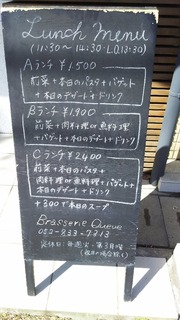 Lunch Menu
(11:30〜14:30 L.O 13:30)
Aランチ ¥1,500
前菜+本日のパスタ+バゲット
+本日のデザート+ドリンク
Bランチ ¥1,900
前菜+肉料理or魚料理
+バゲット+本日のデザート+ドリンク
Cランチ ¥2,400
前菜+本日のパスタ+
肉料理or魚料理+バゲット+
本日のデザート+ドリンク
+300で本日のスープ
Brasserie Queue
052-833-7313
定休日:毎週火・第3月曜